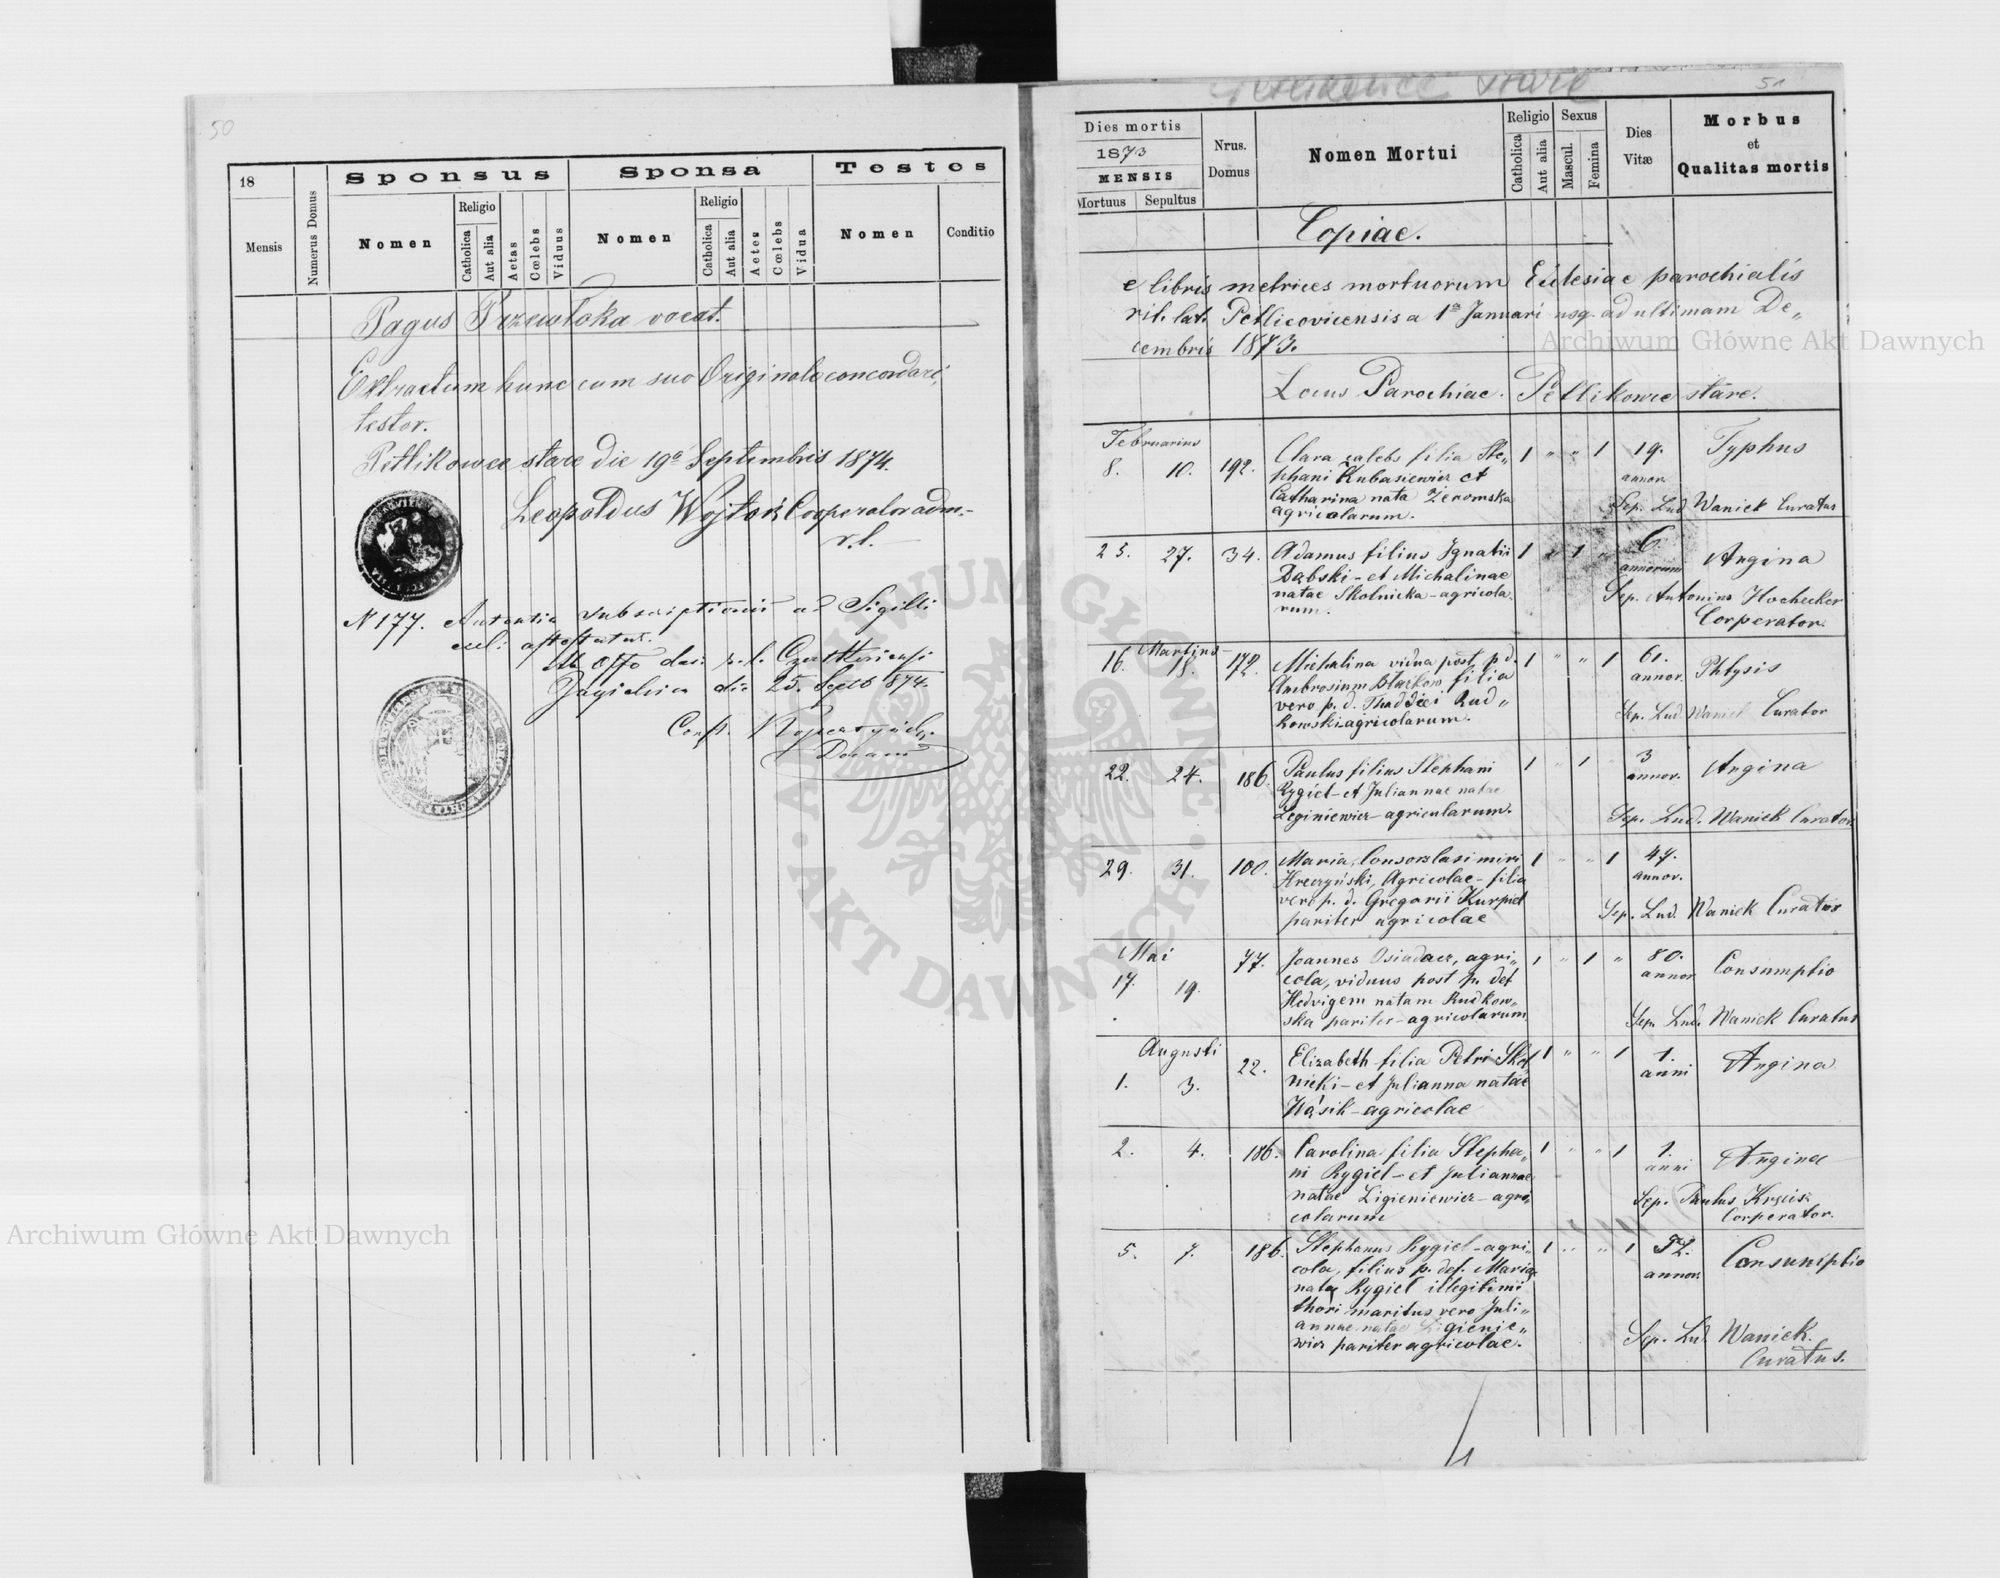 50
18
Sponsus
Sponsa
Testes
Mensis
Numerus Domus
Nomen
Religio
Catholica
Aut alia
Aetas
Cœlebs
Viduus
Nomen
Religio
Catholica
Aut alia
Aetes
Cœlebs
Vidua
Nomen
Conditio
Pagus Przewłoka vocat.
Extractum hunc cum suo Originale concordare,
testor.
Petlikowce stare die 19a Septembris 1874.
Leopoldus Wojtoń Cooperator adm.
r. l.
N 177. subscriptionis ad Sigilli
die 25. Sept 874.
51
Dies mortis
1873
MENSIS
Mortuus Sepultus
Nrus. Domus
Nomen Mortui
Religio
Catholica
Aut alia
Sexus
Mascul.
Femina
Dies Vitæ
Morbus
et
Qualitas mortis
Copiae.
e libris metrices mortuorum Eclesiae parochialis
rit. lat. Petlicovicensis a 1a Januari usq. ad ultimam De„
cembris 1873.
Locus Parochiae. Petlikowce stare.
Februarius
8. 10. 192. Clara calebs filia Ste„ 1 „ „ 1 19. Typhus
phani Kubasiewicz et annor.
Catharina nata Żeromska Sep. Lud Waniek Curatus
agricolarum.
25. 27. 34. Adamus filius Ignatii 1 „ 1 „ 6 Angina
Dąbski - et Michalinae annorum
natae Skolnicka - agricola„ Sep. Antonius Hochecker
rum. Corperator.
Martius
16. 18. 172. Michalina vidua post p. d. 1 „ „ 1 61. Phtysis
Ambrosium Błażkow filia annor.
vero p. d. Thaddei Rud„ Sep. Lud Waniek Curator
kowski agricolarum.
22. 24. 186. Paulus filius Stephani 1 „ 1 „ 3 Angina
Rygiel - et Juliannae natae annor.
Leginiewicz - agricularum. Sep. Lud. Waniek Curator
29. 31. 100. Maria Consors Casimiri 1 „ „ 1 47.
Hreczyński, Agricolae - filia annor.
vero p. d. Gregorii Kurpiel Sep. Lud. Waniek Curatus
pariter agricolae
Mai
17. 19. 77. Joannes Osiadacz, agri„ 1 „ 1 „ 80. Consumptio
cola, viduus post p. def annor
Hedvigem natam Rudkow„
ska pariter - agricolarum Sep. Lud. Waniek Curatus
Augusti
1. 3. 22. Elizabeth filia Petri Skol 1 „ „ 1 1. Angina
nicki - et Julianna natae anni
Wąsik - agricolae
2. 4. 186. Carolina filia Stepha„ 1 „ „ 1 1. Angina
ni Rygiel - et Juliannae anni
natae Ligieniewicz - agri„ Sep. Paulus
colarum Corperator.
5. 7. 186. Stephanus Rygiel - agri„ 1 „ „ 1 52. Consumptio
cola, filius p. def. Maria annor.
nata Rygiel illegitimi
thori maritus vero Juli„
annae natae Ligienie„ Sep. Lud Waniek.
wicz pariter agricolae. Curatus.
Archiwum Główne Akt Dawnych
Archiwum Główne Akt Dawnych
ARCHIWUM GŁÓWNE AKT DAWNYCH